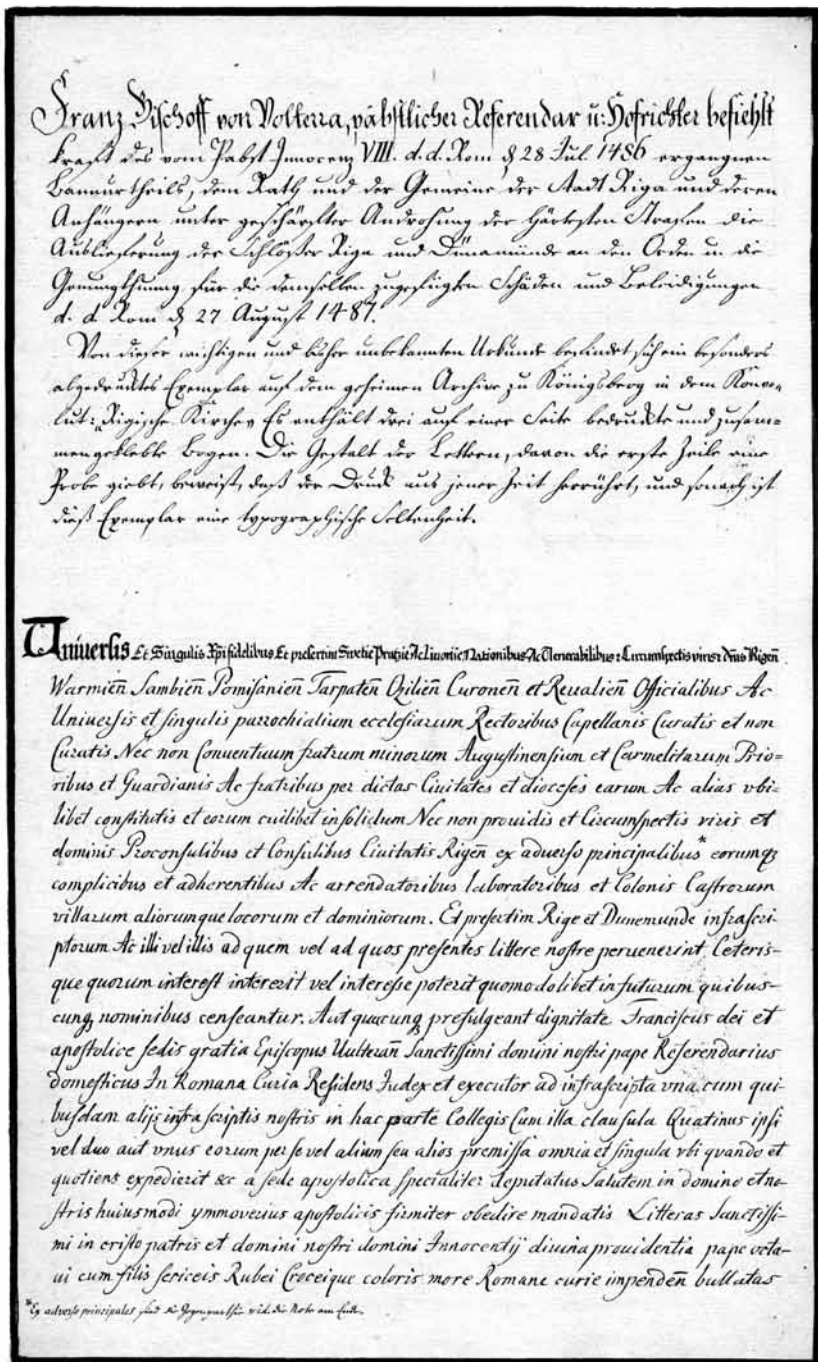 Franz Bischoff von Volterra, päbstlicher Referendar u: Hofrichter befiehlt
kraft des vom Pabst Innocenz VIII. d. d. Rom d 28 Jul. 1486 ergangnen
Bannurtheils, dem Rath und der Gemeine der Stadt Riga und deren
Anhängern unter geschärfter Androhung der härtesten Strafen die
Auslieferung der Schlößer Riga und Dünamünde an den Orden u. die
Genungthuung für die demselben zugefügten Schäden und Beleidigungen
d. d. Rom d 27 August 1487.
Von dieser wichtigen und bisher unbekannten Urkunde befindet sich ein besonders
abgedrucktes Exemplar auf dem geheimen Archive zu Königsberg in dem Konvo-
lut: Rigische Kirche. Es enthält drei auf einer Seite bedruckte und zusam-
mengeklebte Bogen. Die Gestalt der Lettern, davon die erste Zeile eine
Probe giebt, beweist, daß der Druck aus jener Zeit herrührt, und sonach ist
dieß Exemplar eine typographische Seltenheit.
Uniuersis Et Singulis Xpi fidelibus Et presertim Swetie Prutzie Ac Liuonie Nationibus Ac Uenerabilibus z Circumspectis viris z dnis Rigen̄
Warmien̄ Sambien̄ Pomisanien̄ Tarpaten̄ Ozilien̄ Curonen̄ et Reualien̄ Officialibus Ac
Uniuersis et singulis parrochialium ecclesiarum Rectoribus Capellanis Curatis et non
Curatis Nec non Conuentuum fratrum minorum Augustinensium et Carmelitarum Prio-
ribus et Guardianis Ac fratribus per dictas Ciuitates et dioceses earum Ac alias vbi-
libet constitutis et eorum cuilibet in solidum Nec non prouidis et Circumspectis viris et
dominis Proconsulibus et Consulibus Ciuitatis Rigen̄ ex aduerso principalibus* eorumqz
complicibus et adherentibus Ac arrendatoribus laboratoribus et Colonis Castrorum
villarum aliorumque locorum et dominiorum. Et presertim Rige et Dunemunde infrascri-
ptorum Ac illi vel illis ad quem vel ad quos presentes littere nostre peruenerint Ceteris-
que quorum interest intererit vel interesse poterit quomodolibet in futurum quibus-
cunqz nominibus censeantur. Aut quacunqz prefulgeant dignitate Franciscus dei et
apostolice sedis gratia Episcopus Uulteran̄ Sanctissimi domini nostri pape Referendarius
domesticus In Romana Curia Residens Judex et executor ad infrascripta vna cum qui-
busdam alijs infra scriptis nostris in hac parte Collegis Cum illa clausula Quatinus ipsi
vel duo aut vnus eorum per se vel alium seu alios premissa omnia et singula vbi quando et
quotiens expedierit &c a sede apostolica specialiter deputatus Salutem in domino et no-
stris huiusmodi ymmoverius apostolicis firmiter obedire mandatis Litteras Sanctissi-
mi in cristo patris et domini nostri domini Innocentij diuina prouidentia pape octa-
ui cum filis sericeis Rubei Croceique coloris more Romane curie impenden̄ bullatas
*Ex adverso principales sind die Gegenparthie vid. die Note am Ende.